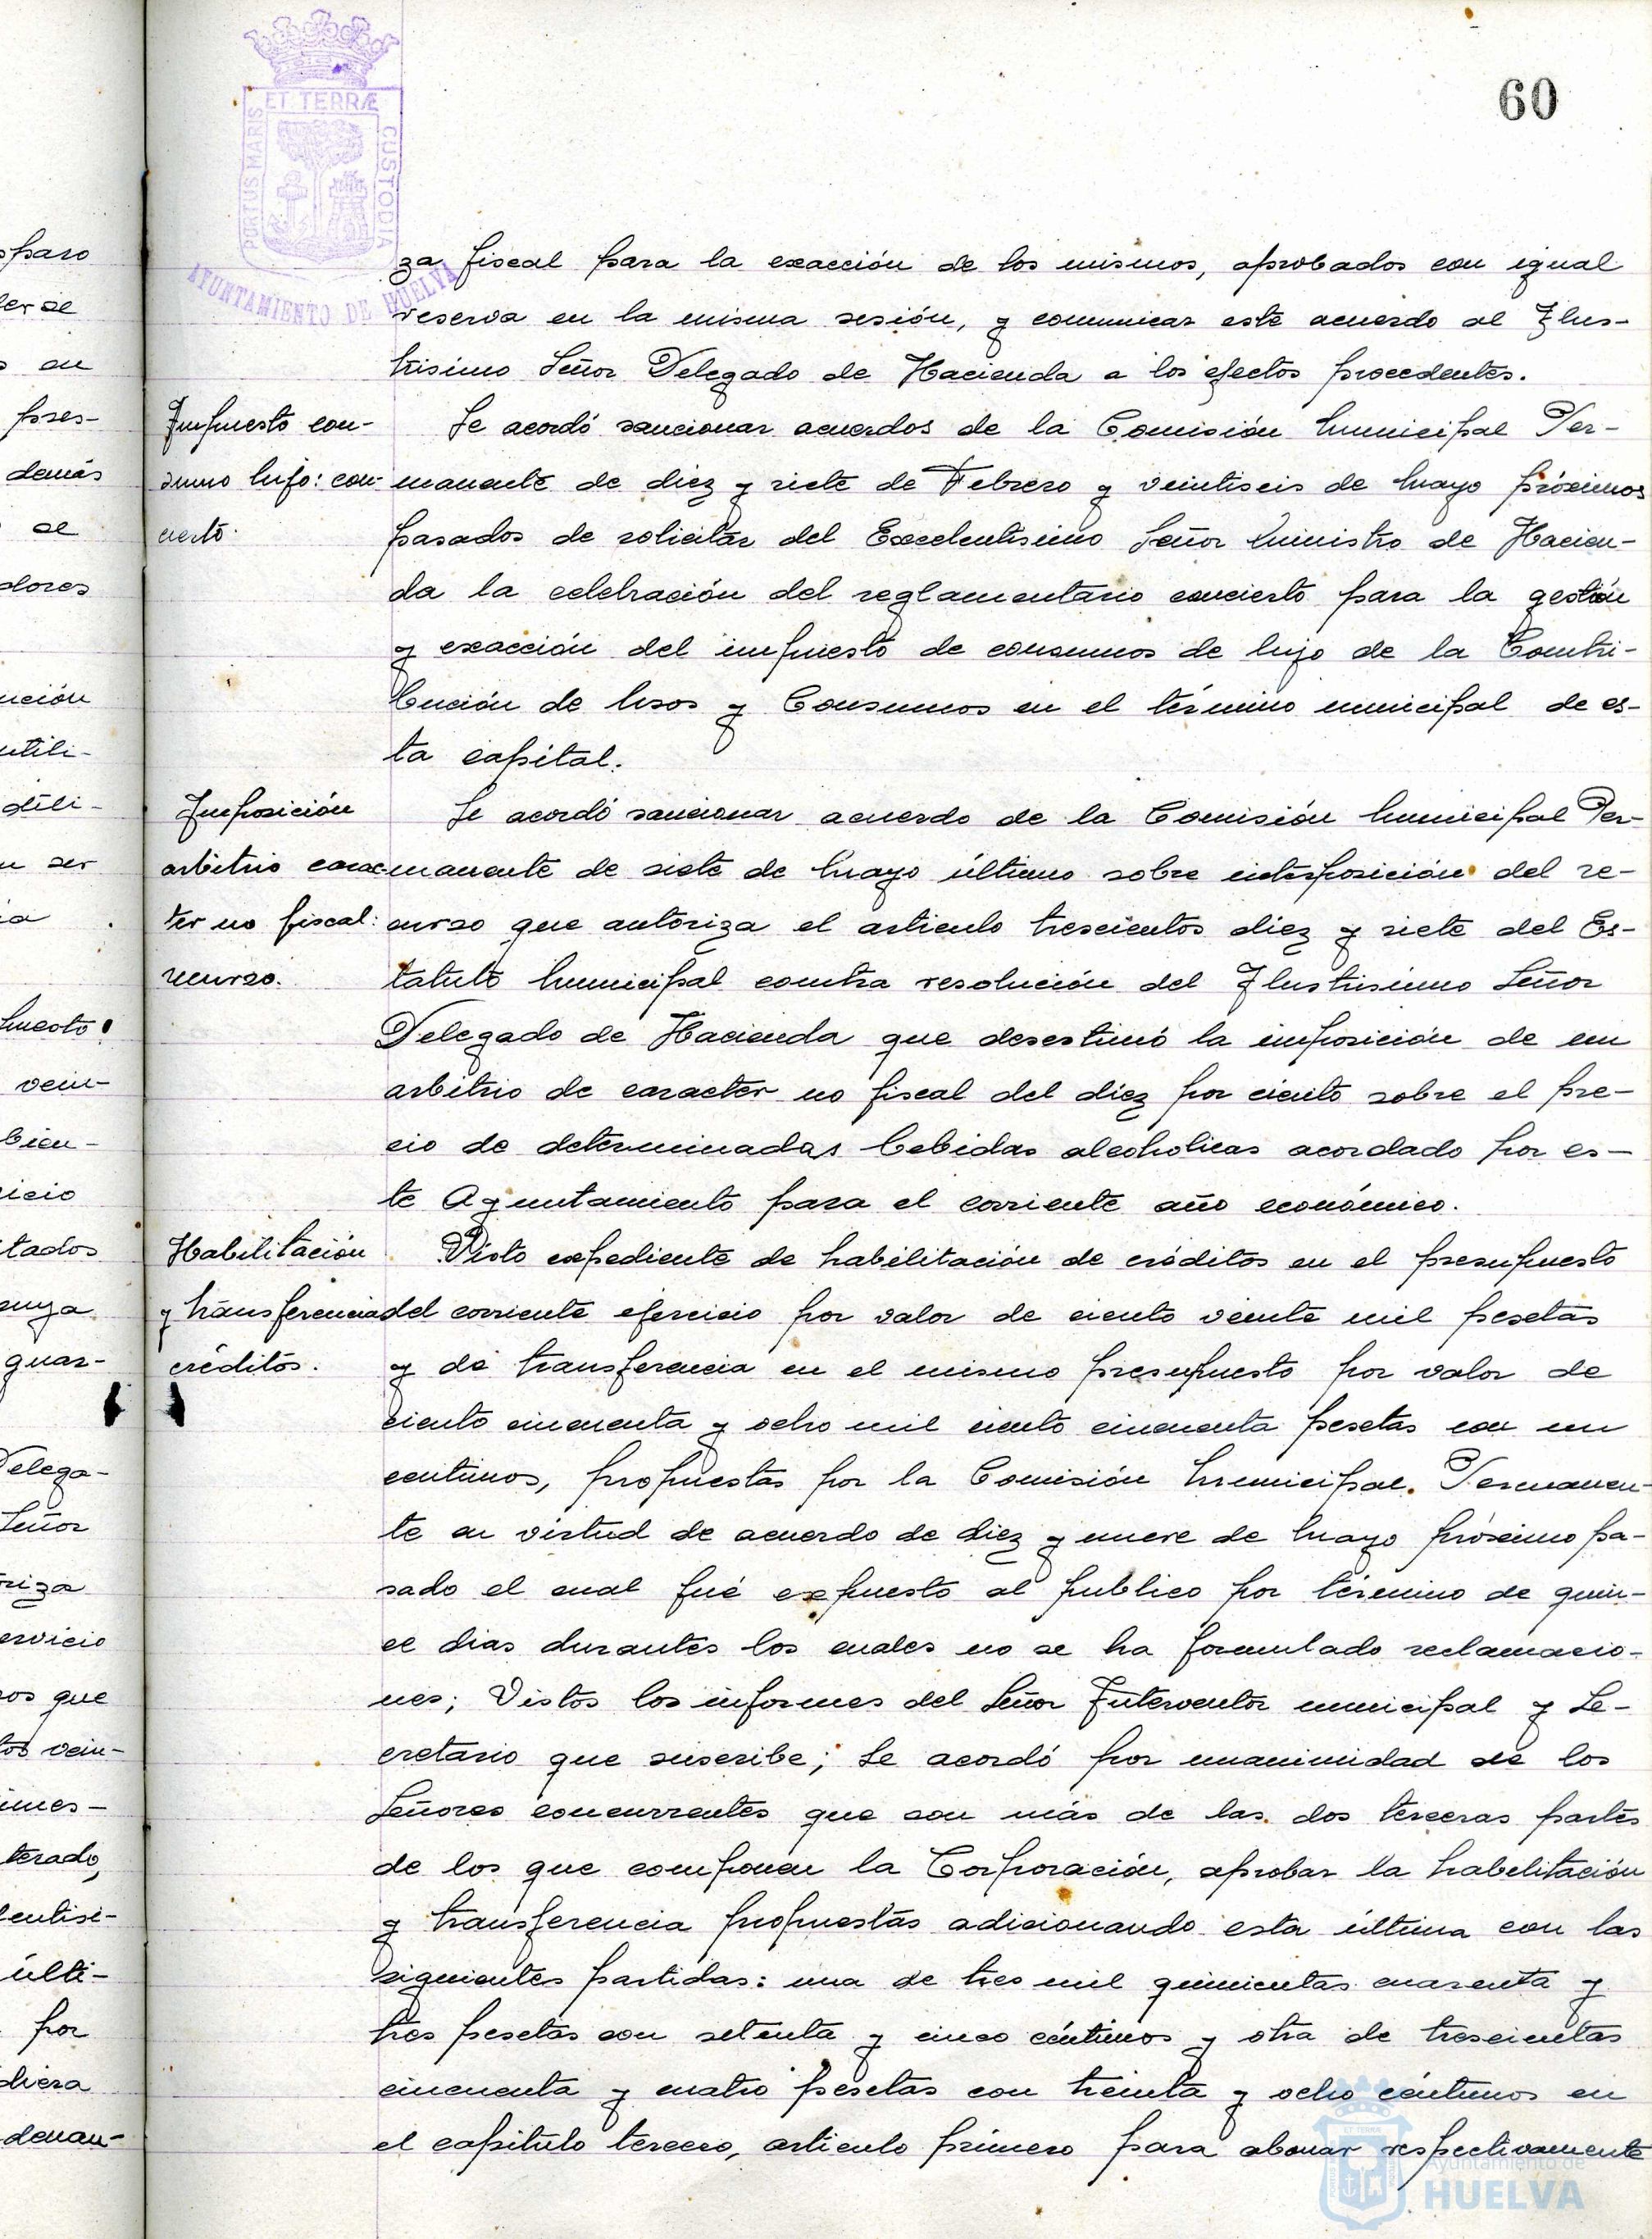 60
ET TERRÆ
PORTUS MARIS
CUSTODIA
AYUNTAMIENTO DE HUELVA
za fiscal para la exacción de los mismos, aprobados con igual
reserva en la misma sesión, y comunicar este acuerdo al Ilus-
trisimo Señor Delegado de Hacienda a los efectos procedentes.
Impuesto con-
sumo lujo: con-
cierto.
Se acordó sancionar acuerdos de la Comisión Municipal Per-
manente de diez y siete de Febrero y veintiseis de Mayo próximos
pasados de solicitar del Excelentisimo Señor Ministro de Hacien-
da la celebración del reglamentario concierto para la gestión
y exacción del impuesto de consumos de lujo de la Contri-
bución de Usos y Consumos en el término municipal de es-
ta capital.
Imposición
arbitrio carac-
ter no fiscal:
recurso.
Se acordó sancionar acuerdo de la Comisión Municipal Per-
manente de siete de Mayo último sobre interposición del re-
curso que autoriza el articulo trescientos diez y siete del Es-
tatuto Municipal contra resolución del Ilustrisimo Señor
Delegado de Hacienda que desestimó la imposición de un
arbitrio de caracter no fiscal del diez por ciento sobre el pre-
cio de determinadas bebidas alcoholicas acordado por es-
te Ayuntamiento para el corriente año económico.
Habilitación
y transferencias
créditos.
Visto expediente de habilitación de créditos en el presupuesto
del corriente ejercicio por valor de ciento veinte mil pesetas
y de transferencia en el mismo presupuesto por valor de
ciento cincuenta y ocho mil ciento cincuenta pesetas con un
centimos, propuestas por la Comisión Municipal Permanen-
te en virtud de acuerdo de diez y nueve de Mayo próximo pa-
sado el cual fué expuesto al publico por término de quin-
ce dias durantes los cuales no se ha formulado reclamacio-
nes; Vistos los informes del Señor Interventor municipal y Se-
cretario que suscribe; Se acordó por unanimidad de los
Señores concurrentes que son más de las dos terceras partes
de los que componen la Corporación, aprobar la habilitación
y transferencia propuestas adicionando esta última con las
siguientes partidas: una de tres mil quinientas cuarenta y
tres pesetas con setenta y cinco céntimos y otra de trescientas
cincuenta y cuatro pesetas con treinta y ocho céntimos en
el capitulo tercero, articulo primero para abonar respectivamente
Ayuntamiento de
HUELVA